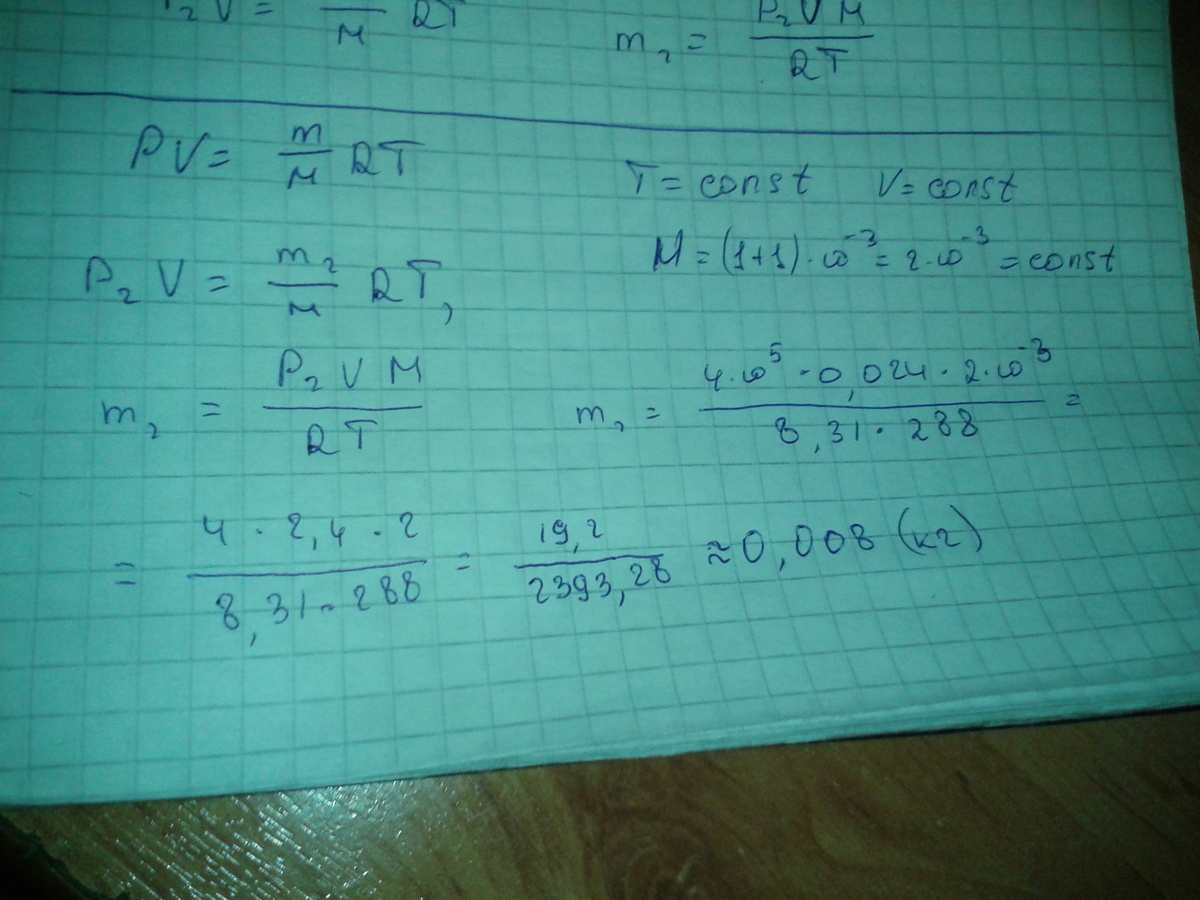 P₂V = — RT
M
m₂ = P₂VM / RT
PV = m/M RT
T = const V = const
M = (1+1)·10⁻³ = 2·10⁻³ = const
P₂V = m₂/M RT,
m₂ = P₂VM / RT
m₂ = 4·10⁵·0,024·2·10⁻³ / 8,31·288 =
= 4·2,4·2 / 8,31·288 = 19,2 / 2393,28 ≈ 0,008 (кг)